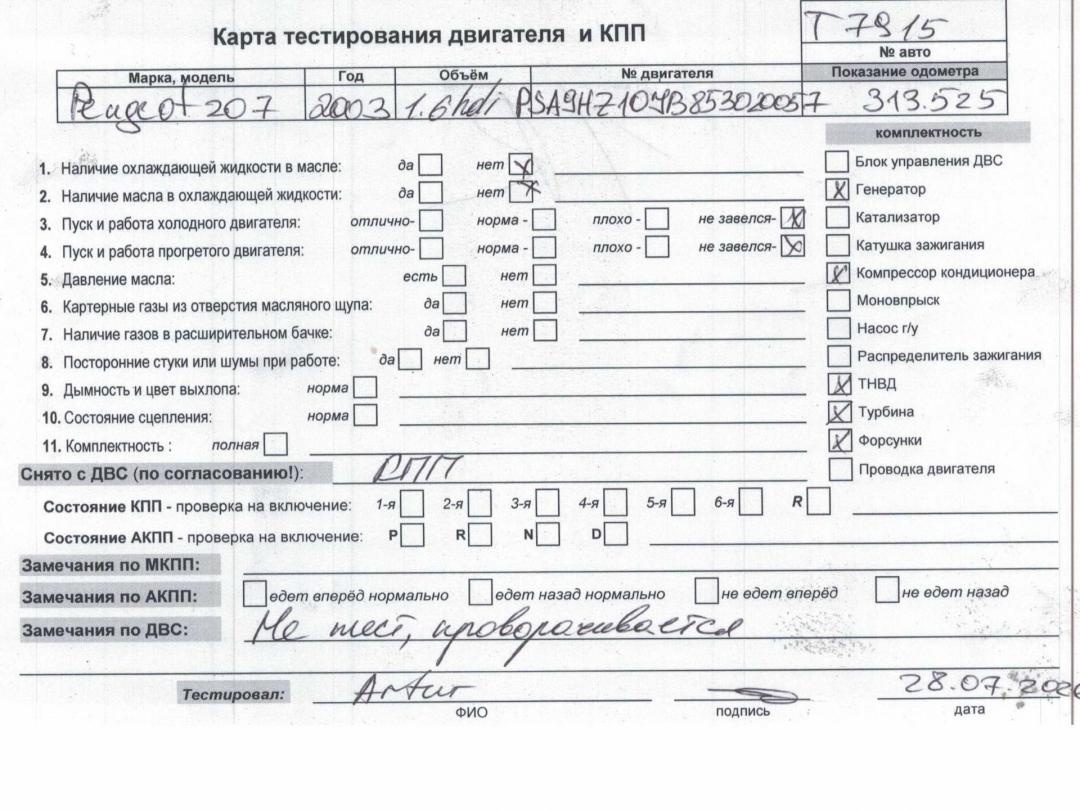 Т 7915
Карта тестирования двигателя и КПП
№ авто
Марка, модель Год Объём № двигателя Показание одометра
Peugeot 207 2003 1.6hdi PSA9HZ10YB853020057 313.525
комплектность
1. Наличие охлаждающей жидкости в масле: да нет X
Блок управления ДВС
2. Наличие масла в охлаждающей жидкости: да нет X
X Генератор
3. Пуск и работа холодного двигателя: отлично- норма - плохо - не завелся- X
Катализатор
4. Пуск и работа прогретого двигателя: отлично- норма - плохо - не завелся- X
Катушка зажигания
5. Давление масла: есть нет
X Компрессор кондиционера
6. Картерные газы из отверстия масляного щупа: да нет
Моновпрыск
7. Наличие газов в расширительном бачке: да нет
Насос г/у
8. Посторонние стуки или шумы при работе: да нет
Распределитель зажигания
9. Дымность и цвет выхлопа: норма
X ТНВД
10. Состояние сцепления: норма
X Турбина
11. Комплектность : полная
X Форсунки
Снято с ДВС (по согласованию!): КПП
Проводка двигателя
Состояние КПП - проверка на включение: 1-я 2-я 3-я 4-я 5-я 6-я R
Состояние АКПП - проверка на включение: P R N D
Замечания по МКПП:
Замечания по АКПП: едет вперёд нормально едет назад нормально не едет вперёд не едет назад
Замечания по ДВС: Не тест, проворачивается
Тестировал: Artur 28.07.2020
ФИО подпись дата